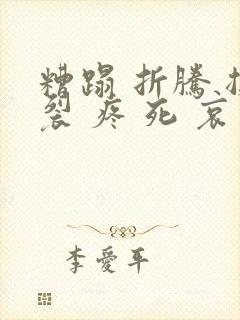 糟蹋 折騰
裂 疼 死 哀
李愛平